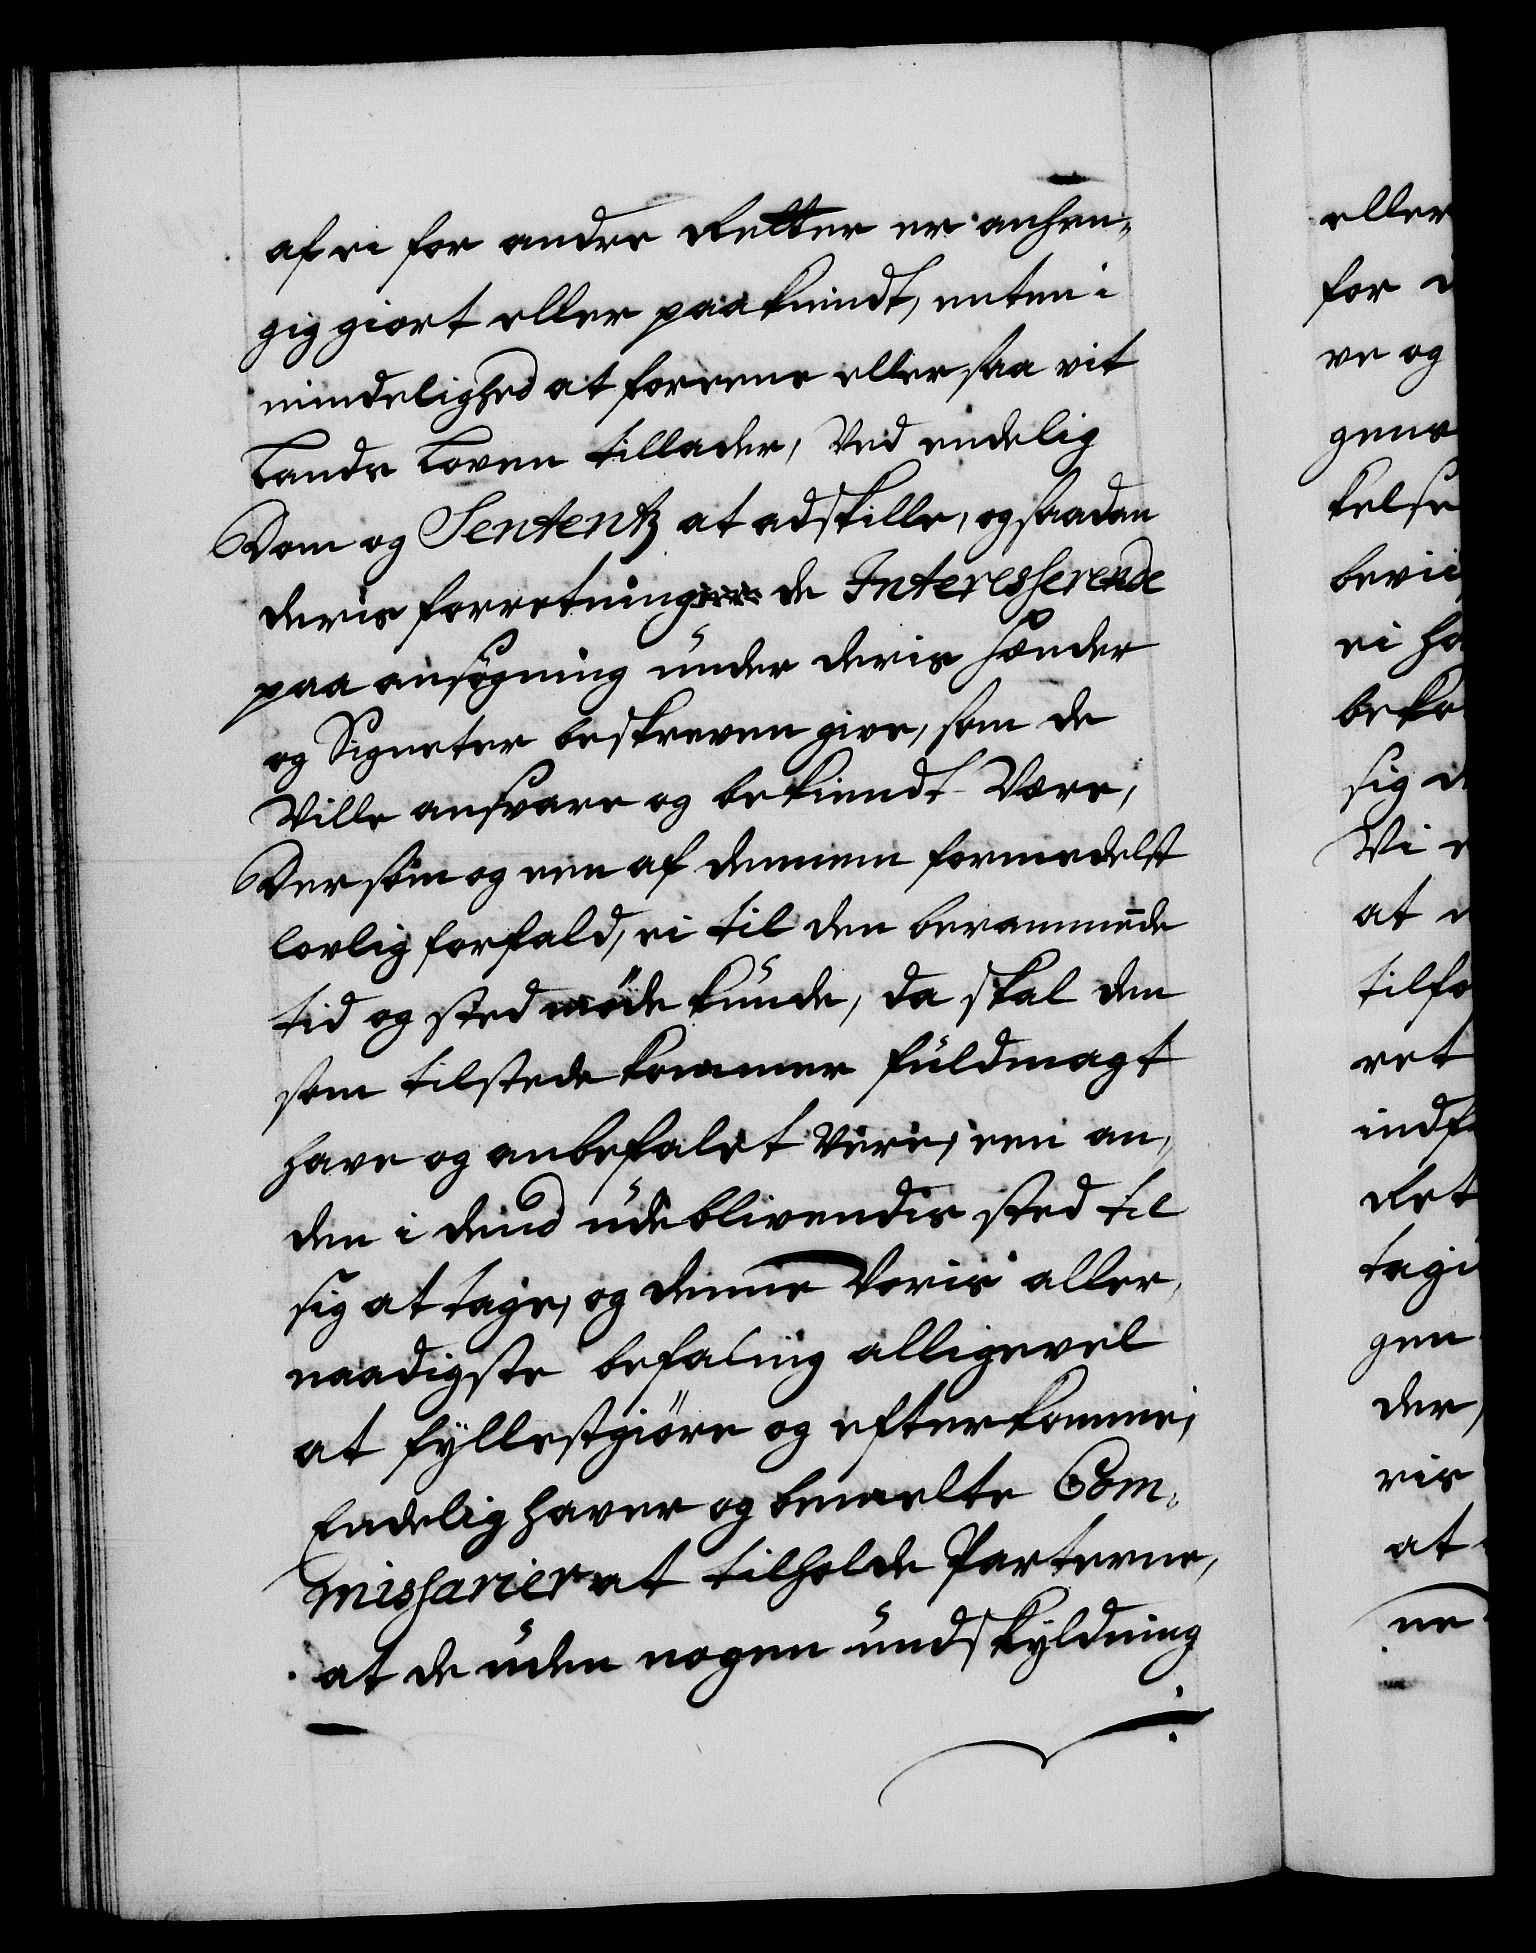 af ei for andre Retter er anhen-
gig giort eller paakiendt, enten i
mindelighed at foreene eller saa vit
Lands Loven tillader, Ved endelig
Dom og Sententz at adskille, og saadan
deris forretning de Interesserende
paa ansøgning under deris hænder
og Signeter beskreven give, som de
Ville ansvare og bekiendt Være,
Dersom og een af dennem formedelst
lovlig forfald, ei til den berammede
tid og sted møde kunde, da skal den
som tilstede kommer fuldmagt
have og anbefalet Være, een an-
den i dend udeblivendis sted til
sig at tage, og denne Voris aller-
naadigste befaling alligevel
at fyllestgiøre og efterkomme,
Endelig haver og bemelte Com-
missarier at tilholde Parterne,
at de uden nogen undskyldning
eller
for
ve og
gens
kelse
bevii
ei ha
beko
sig
Vi
at
tilfo
ret
indf
det
tagi
gen
der,
ris
at
ne